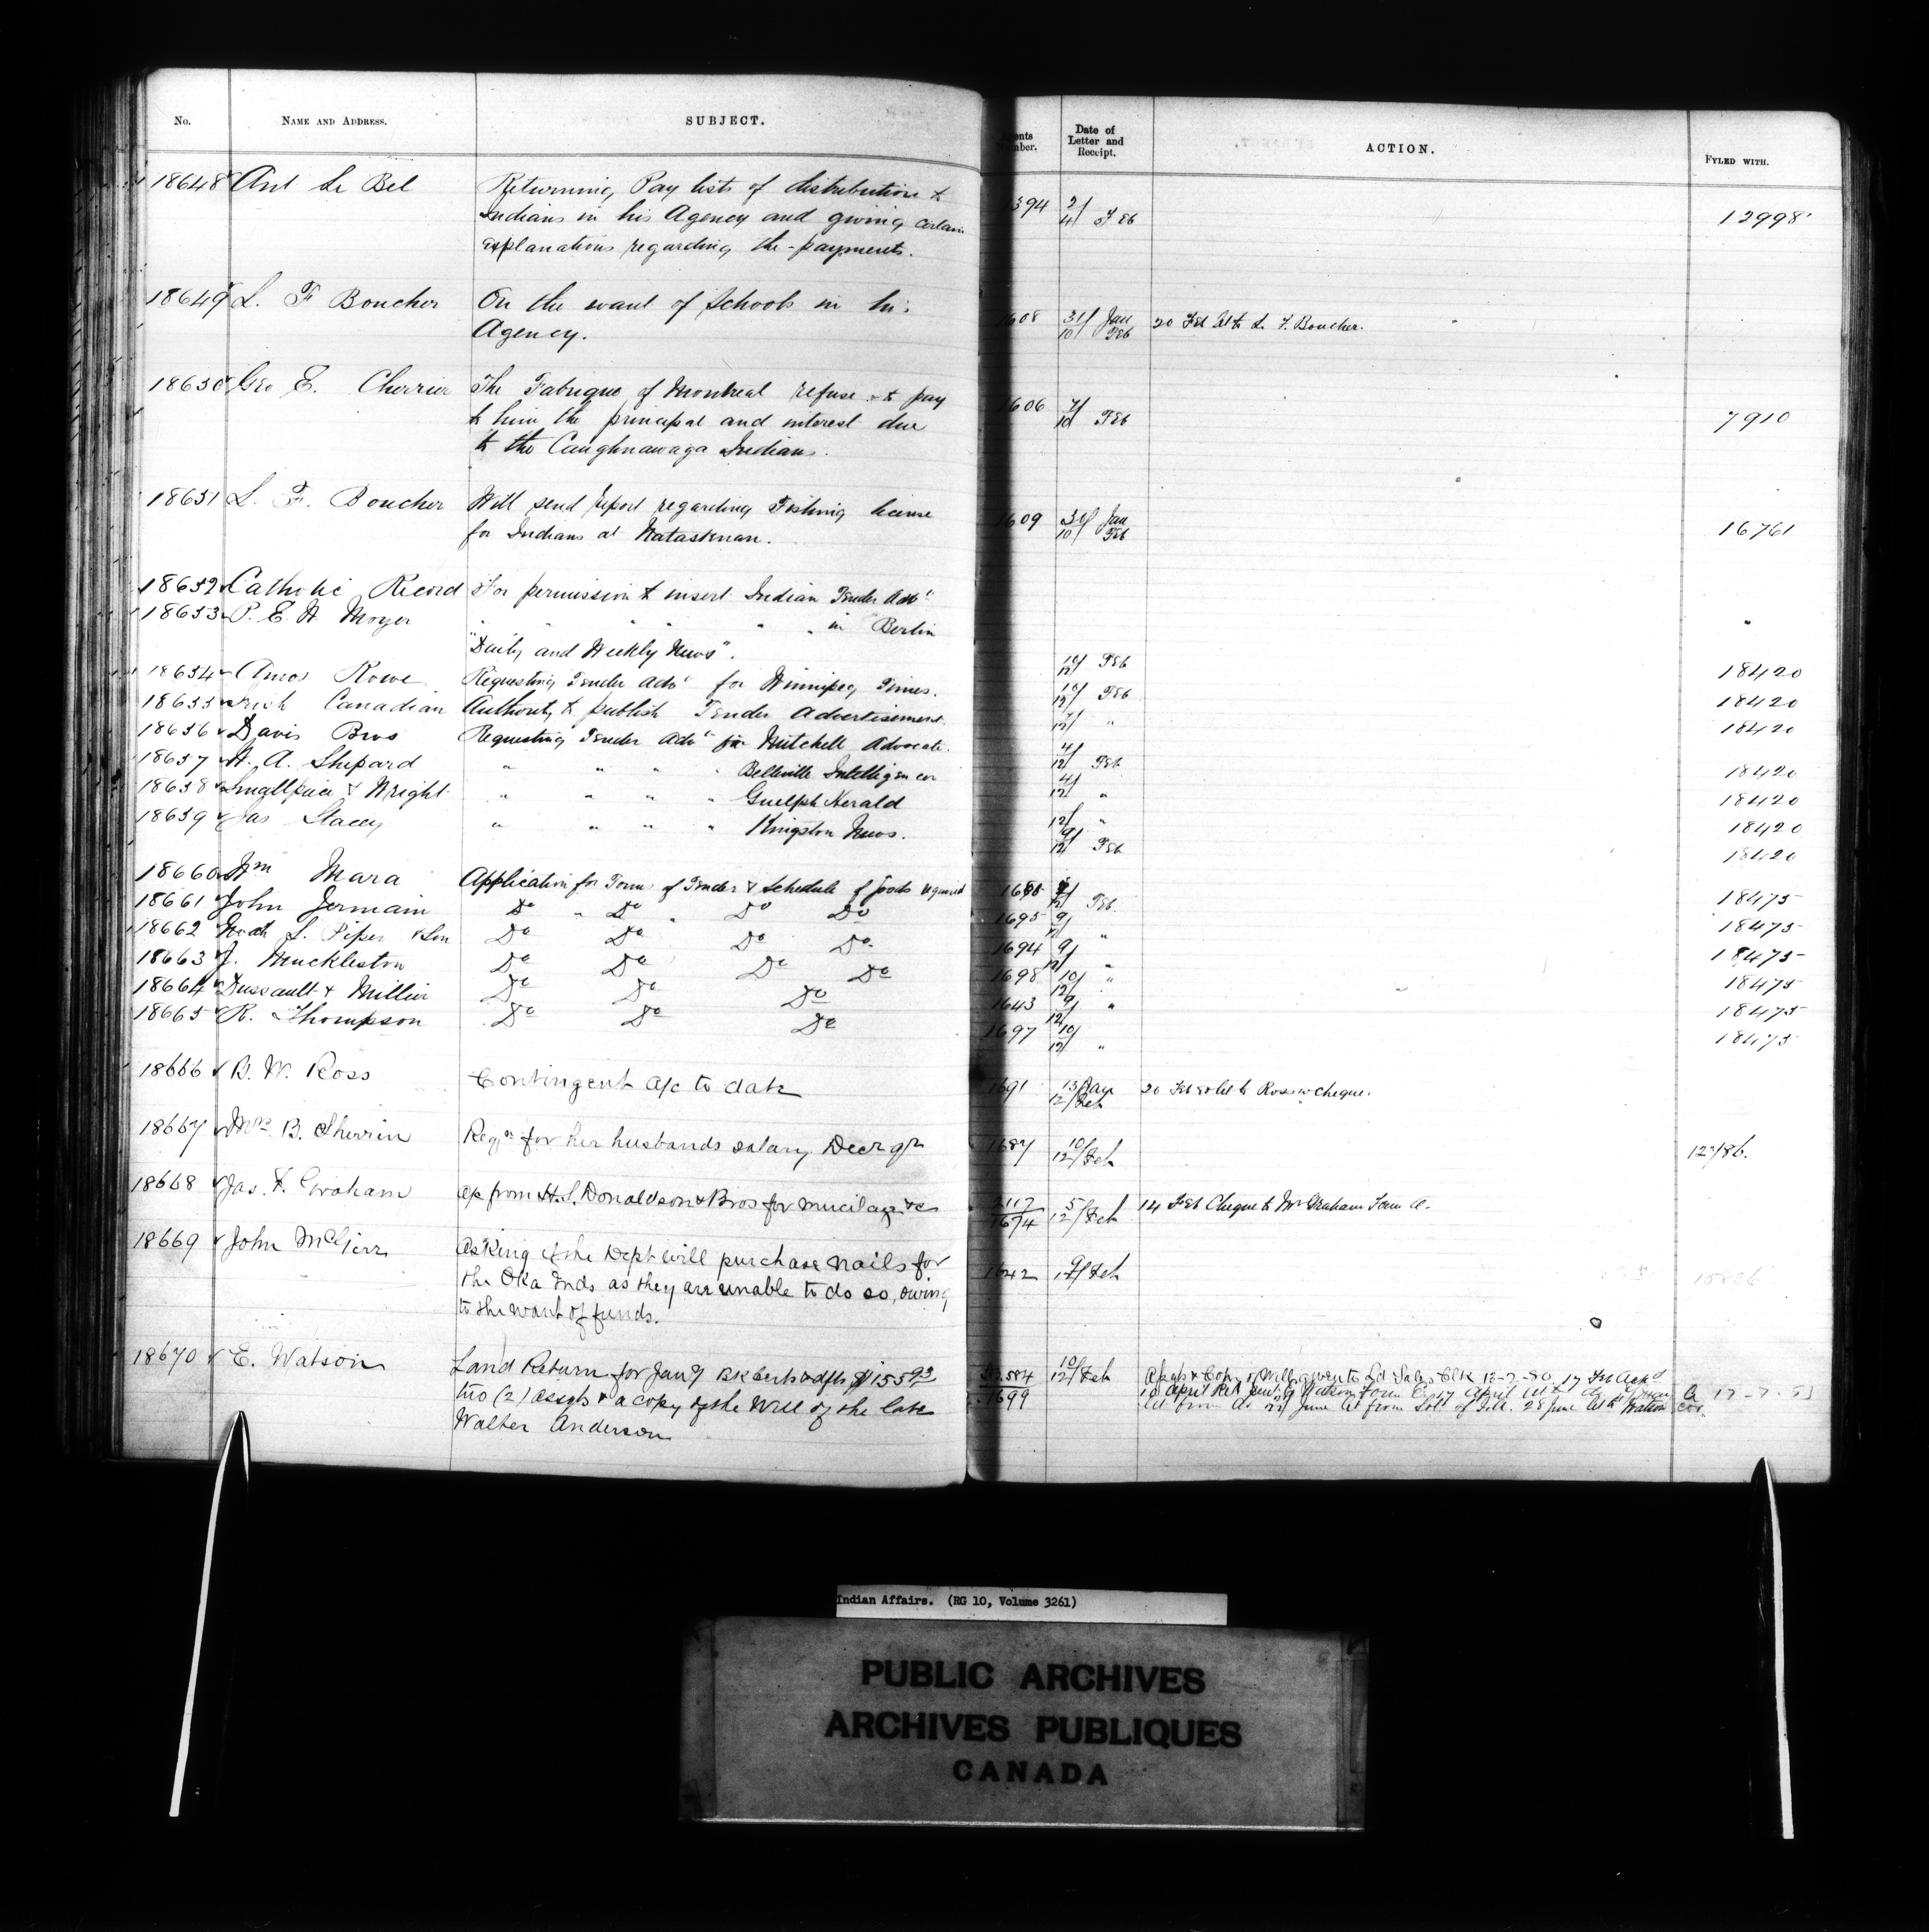 No. NAME AND ADDRESS. SUBJECT. Number. Date of Letter and Receipt. ACTION. FYLED WITH.
18648 Ant Le Bel Returning Pay lists of distribution to 394 2/ 12998
Indians in his Agency and giving certain 4/ Feb
explanations regarding the payments.
18649 L. F Boucher On the want of Schools in his 1608 31/ Jan 20 Feb let to L. F. Boucher.
Agency. 10/ Feb
18650 Geo E. Cherrier The Fabrique of Montreal refuse to pay 1606 7/ 7910
to him the principal and interest due 10/ Feb
to the Caughnawaga Indians.
18651 L. F. Boucher Will send report regarding Fishing license 1609 31/ Jan 16761
for Indians at Nataskuan. 10/ Feb
18652 Catholic Record For permission to insert Indian Tender Advt
18653 P. E. W. Moyer " " " " " " in Berlin
"Daily and Weekly News". 10/12 Feb 18420
18654 Amos Rowe Requesting Tender Advt for Winnipeg Times. 10/12 Feb 18420
18655 Irish Canadian Authority to publish Tender Advertisement 7/12 " 18420
18656 Davis Bros Requesting Tender Advt for Mitchell Advocate. 4/12 Feb 18420
18657 H. A. Shepard " " " " Belleville Intelligencer 4/12 " 18420
18658 Smallpiece & Wright " " " " Guelph Herald 12/ " 18420
18659 Jas Stacey " " " " Kingston News. 9/12 Feb 18420
18660 Wm Mara Application for Forms of Tender & Schedule of Goods required Feb 18475
18661 John Jermain Do " Do " Do Do 1695 9/12 " 18475
18662 Noah L. Piper & Son Do Do Do Do 1694 9/12 " 18475
18663 J. Muckleston Do Do Do Do 1698 10/12 " 18475
18664 Dussault & Millier Do Do Do 1643 9/12 " 18475
18665 R. Thompson Do Do Do 1697 10/12 " 18475
18666 B. W. Ross Contingent a/c to date 1691 13/Jan 12/Feb 20 Feb let to Ross w cheque.
18667 Mrs. B. Sherrin Regn for her husbands salary Decr qr 1687 10/12/Feb 12786.
18668 Jas. F. Graham a/c from H. S. Donaldson & Bros for mucilage &c 2117/1674 5/12/Feb 14 Feb Cheque to Mr Graham Form A.
18669 John McGirr Asking if the Dept will purchase nails for
the Oka Inds as they are unable to do so, owing 1642 9/12/Feb
to the want of funds.
18670 E. Watson Land Return for Jany Bk certs & dfts $155.93 10/12/Feb
two (2) assgts & a copy of the Will of the late 1699
Walter Anderson
Indian Affairs. (RG 10, Volume 3261)
PUBLIC ARCHIVES
ARCHIVES PUBLIQUES
CANADA